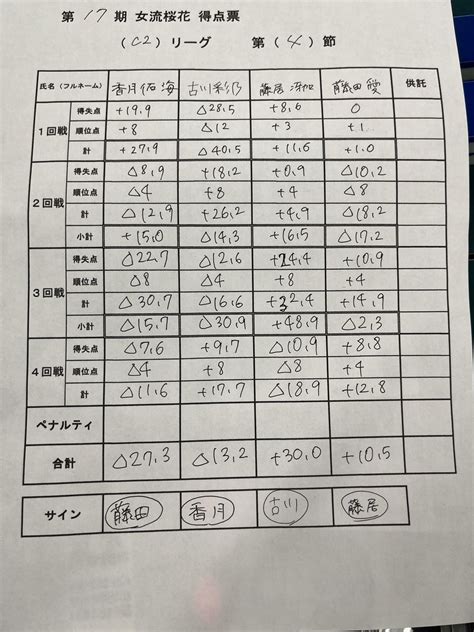 第 17 期 女流桜花 得点票
(C2) リーグ 第 (4) 節
氏名 (フルネーム) 香月 佑海 古川彩乃 藤居 冴加 藤田 愛 供託
1回戦 得失点 +19,9 △28,5 +8,6 0
順位点 +8 △12 +3 +1
計 +27,9 △40,5 +11,6 +1,0
2回戦 得失点 △8,9 +18,2 +0,9 △10,2
順位点 △4 +8 +4 △8
計 △12,9 +26,2 +4,9 △18,2
小計 +15,0 △14,3 +16,5 △17,2
3回戦 得失点 △22,7 △12,6 +24,4 +10,9
順位点 △8 △4 +8 +4
計 △30,7 △16,6 +32,4 +14,9
小計 △15,7 △30,9 +48,9 △2,3
4回戦 得失点 △7,6 +9,7 △10,9 +8,8
順位点 △4 +8 △8 +4
計 △11,6 +17,7 △18,9 +12,8
ペナルティ
合計 △27,3 △13,2 +30,0 +10,5
サイン 藤田 香月 古川 藤居